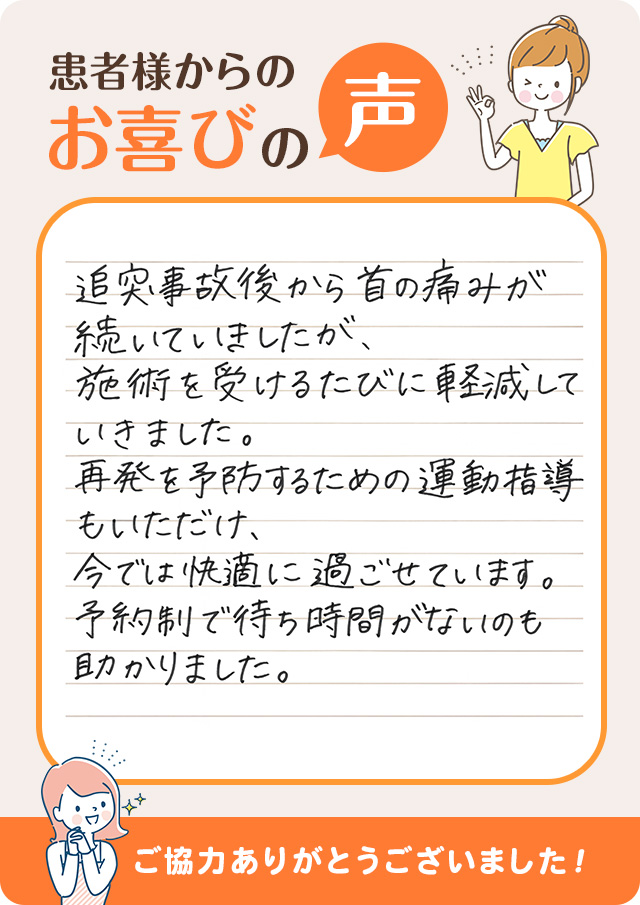 患者様からの
お喜びの声
追突事故後から首の痛みが
続いていましたが、
施術を受けるたびに軽減して
いきました。
再発を予防するための運動指導
もいただけ、
今では快適に過ごせています。
予約制で待ち時間がないのも
助かりました。
ご協力ありがとうございました!